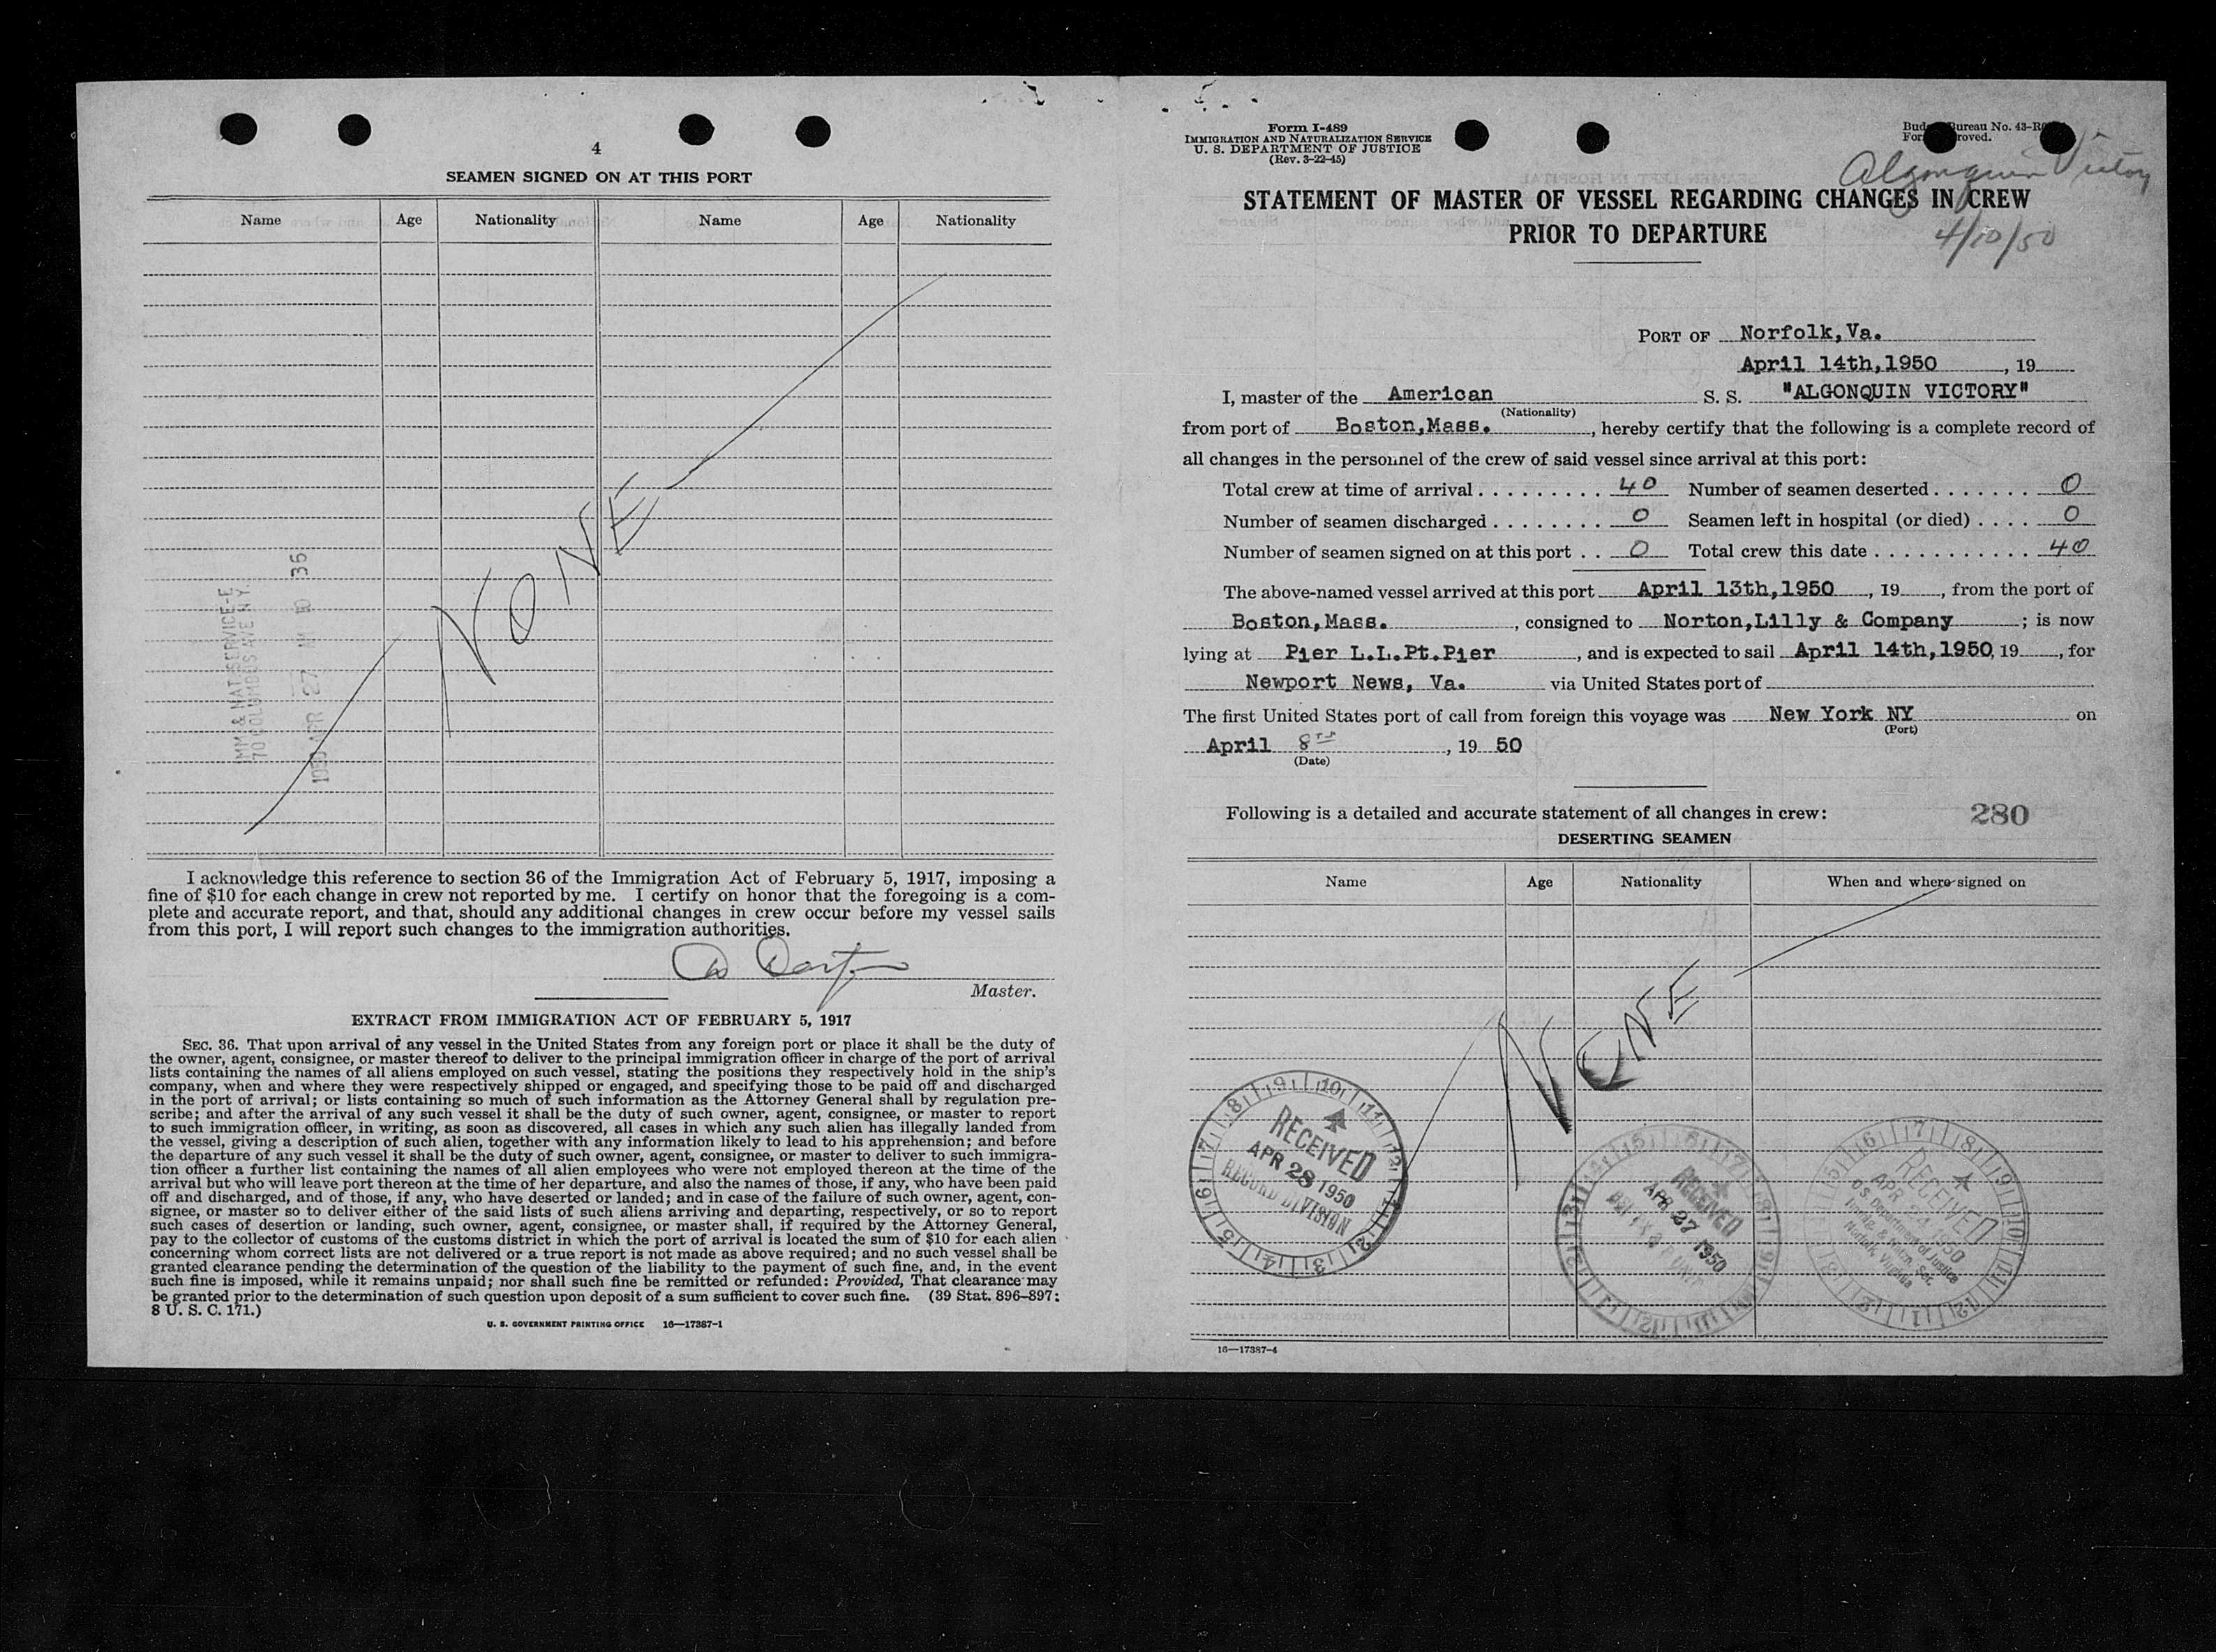 4
SEAMEN SIGNED ON AT THIS PORT
Name Age Nationality Name Age Nationality
NONE
IMM & NAT. SERVICE-E
70 COLUMBUS AVE N.Y.
1950 APR 27 AM 10 36
I acknowledge this reference to section 36 of the Immigration Act of February 5, 1917, imposing a
fine of $10 for each change in crew not reported by me. I certify on honor that the foregoing is a com-
plete and accurate report, and that, should any additional changes in crew occur before my vessel sails
from this port, I will report such changes to the immigration authorities.
Master.
EXTRACT FROM IMMIGRATION ACT OF FEBRUARY 5, 1917
SEC. 36. That upon arrival of any vessel in the United States from any foreign port or place it shall be the duty of
the owner, agent, consignee, or master thereof to deliver to the principal immigration officer in charge of the port of arrival
lists containing the names of all aliens employed on such vessel, stating the positions they respectively hold in the ship's
company, when and where they were respectively shipped or engaged, and specifying those to be paid off and discharged
in the port of arrival; or lists containing so much of such information as the Attorney General shall by regulation pre-
scribe; and after the arrival of any such vessel it shall be the duty of such owner, agent, consignee, or master to report
to such immigration officer, in writing, as soon as discovered, all cases in which any such alien has illegally landed from
the vessel, giving a description of such alien, together with any information likely to lead to his apprehension; and before
the departure of any such vessel it shall be the duty of such owner, agent, consignee, or master to deliver to such immigra-
tion officer a further list containing the names of all alien employees who were not employed thereon at the time of the
arrival but who will leave port thereon at the time of her departure, and also the names of those, if any, who have been paid
off and discharged, and of those, if any, who have deserted or landed; and in case of the failure of such owner, agent, con-
signee, or master so to deliver either of the said lists of such aliens arriving and departing, respectively, or so to report
such cases of desertion or landing, such owner, agent, consignee, or master shall, if required by the Attorney General,
pay to the collector of customs of the customs district in which the port of arrival is located the sum of $10 for each alien
concerning whom correct lists are not delivered or a true report is not made as above required; and no such vessel shall be
granted clearance pending the determination of the question of the liability to the payment of such fine, and, in the event
such fine is imposed, while it remains unpaid; nor shall such fine be remitted or refunded: Provided, That clearance may
be granted prior to the determination of such question upon deposit of a sum sufficient to cover such fine. (39 Stat. 896-897;
8 U. S. C. 171.)
U. S. GOVERNMENT PRINTING OFFICE 16—17387-1
Form I-489
IMMIGRATION AND NATURALIZATION SERVICE
U. S. DEPARTMENT OF JUSTICE
(Rev. 3-22-45)
Bureau No. 43-R
Algonquin Victory
4/10/50
STATEMENT OF MASTER OF VESSEL REGARDING CHANGES IN CREW
PRIOR TO DEPARTURE
PORT OF Norfolk,Va.
April 14th,1950, 19
I, master of the American S. S. "ALGONQUIN VICTORY"
(Nationality)
from port of Boston,Mass., hereby certify that the following is a complete record of
all changes in the personnel of the crew of said vessel since arrival at this port:
Total crew at time of arrival . . . . . . . . . 40 Number of seamen deserted . . . . . . . 0
Number of seamen discharged . . . . . . . . 0 Seamen left in hospital (or died) . . . . 0
Number of seamen signed on at this port . . 0 Total crew this date . . . . . . . . . . . . 40
The above-named vessel arrived at this port April 13th,1950, 19, from the port of
Boston,Mass., consigned to Norton,Lilly & Company; is now
lying at Pier L.L.Pt.Pier, and is expected to sail April 14th,1950, 19, for
Newport News, Va. via United States port of
The first United States port of call from foreign this voyage was New York NY on
(Port)
April 8TH, 19 50
(Date)
Following is a detailed and accurate statement of all changes in crew: 280
DESERTING SEAMEN
Name Age Nationality When and where signed on
NONE
RECEIVED
APR 28 1950
RECORD DIVISION
RECEIVED
APR 27 1950
UNIT
RECEIVED
APR 24 1950
U.S. Department of Justice
Immig. & Natzn. Ser.
Norfolk, Virginia
16—17387-4